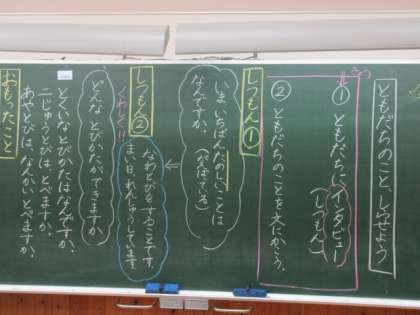 ともだちのこと、しらせよう
きょう
① ともだちにインタビュー
(しつもん)
② ともだちのことを文にかこう。
しつもん①
いま いちばんたのしいことは
なんですか。
(がんばっている)
なわとびをすることです。
まい日、れんしゅうしています。
しつもん②
くわしく!!
どんな とびかたができますか。
とくいなとびかたはなんですか。
二じゅうとびは、とべますか。
あやとびは、なんかいとべますか。
おもったこと